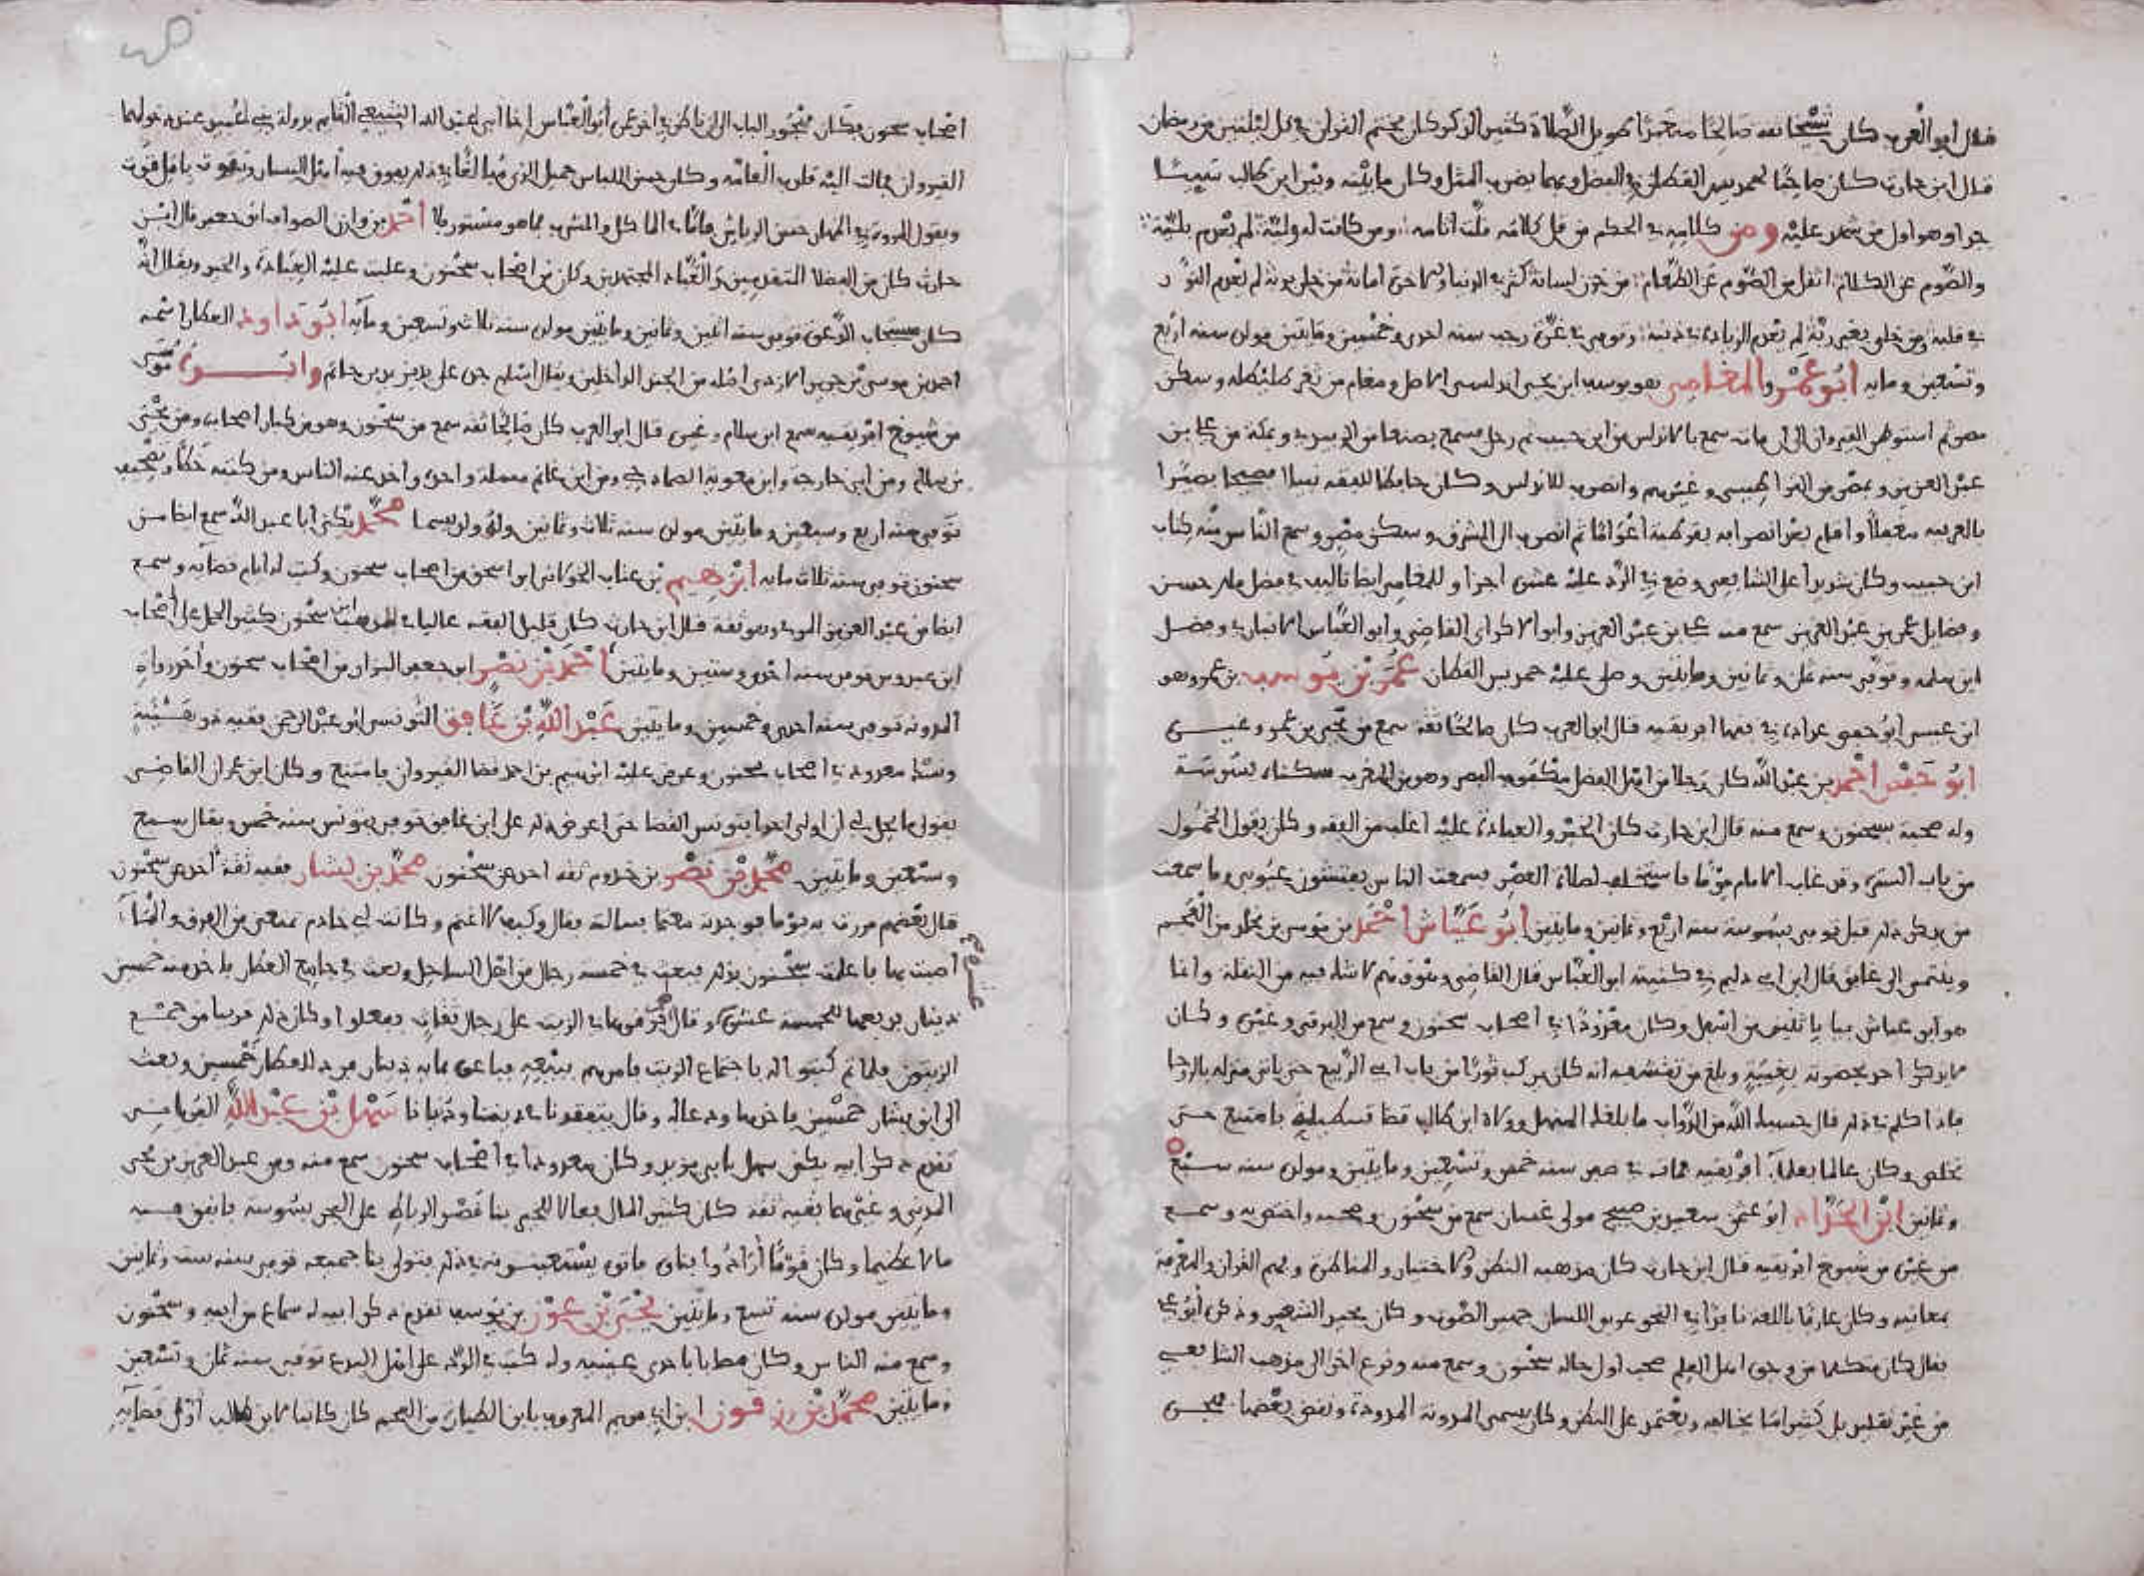 قال أبو العرب كان شيخا ثقة صالحا متعبدا طويل الصلاة كثير الذكر كان يختم القرآن في كل ليلتين من رمضان
قال ابن حارث كان صاحبا لحمديس القطان في الفضل وبهما يضرب المثل وكان ما بينه وبين ابن طالب سيئا
جدا وهو أول من شهد عليه ومن كلامه في الحكم من قل كلامه قلت آثامه ومن كانت له ولية لم يعدم بلية
والصوم عن الكلام أثقل من الصوم عن الطعام من خزن لسانه كثر في الدنيا
في قلبه ومن خلي بغير ربه لم يعدم الزيادة في ذنبه وتوفي في غرة رجب سنة احدى وخمسين ومايتين مولده سنة اربع
وتسعين ومايه أبو عمرو المغامي هو يوسف ابن يحيى اندلسي الاصل ومغام من ثغر طليطلة وسكن
مصر ثم استوطن القيروان الى ان مات سمع بالاندلس من ابن حبيب ثم رحل فسمع بصنعا من الدبري وبمكة من علي بن
عبد العزيز وبمصر من القراطيسي وغيرهم وانصرف للاندلس وكان حافظا للفقه نبيلا فصيحا بصيرا
بالعربية وأقام بعد انصرافه بقرطبة أعواما ثم انصرف الى المشرق وسكن مصر وسمع الناس منه كتاب
ابن حبيب وكان شديدا على الشافعي وضع في الرد عليه عشرة أجزا وللمغامي ايضا تاليف في فضل مالك حسن
وفضايل عمر بن عبد العزيز سمع منه علي بن عبد العزيز وأبو الذكر القاضي وأبو العباس الابياني وفضل
ابن سلمه وتوفي سنة ثمان وثمانين ومايتين وصلى عليه حمديس القطان عمر بن يوسف بن عمروهو
ابن عيسى أبو حفص عداده في فقها افريقيه قال ابو العرب كان صالحا ثقة سمع من يحيى بن عمر وغيره
أبو جعفر أحمد بن عبد الله كان رجلا من أهل الفضل مكفوف البصر وهو من المغرب سكناه بسوسة
وله صحبة بسحنون وسمع منه قال ابن حارث كان الخير والعبادة عليه أغلب من الفقه وكان يقول الخمول
من باب الستر وقد غاب الامام يوما فاستخلف لصلاة العصر فسمعت الناس يفتشون عيوبي وما سمعت
من يذكر ذلك قبل توفي بسوسة سنة أربع وثمانين ومايتين أبو عياش أحمد بن موسى بن مخلد من العجم
وينتمي الى غافق قال ابن ابي دليم في كنيته أبو العباس قال القاضي وهو وهم لا شك فيه من النقلة وانما
هو ابو عياش بيا باثنتين من أسفل وكان معدودا في أصحاب سحنون وسمع من البرقي وغيره وكان
لا يذكر احد بحضرته بغيبة وبلغ من تقشفه انه كان يركب ثورا من باب ابي الربيع حتى ياتي منزله بالرحا
فاذا كلم في ذلك قال حسبك الله من الدواب ما بلغك المنهل وولاه ابن طالب قضا قسطيلية فامتنع حتى
تخلص وكان عالما بعلما افريقيه مات في صفر سنة خمس وتسعين ومايتين ومولده سنة سبع
وثمانين ابن الحداد أبو عثمن سعيد بن صبيح مولى غسان سمع من سحنون وصحبه واختص به وسمع
من غيره من شيوخ افريقيه قال ابن حارث كان مذهبه النظر والاختيار والمناظرة وفهم القرآن والمعرفة
بمعانيه وكان عارفا باللغة نافذا في النحو عربي اللسان جهير الصوت وكان يجيد الشعر وذكره أبو علي
فقال كان متكلما من وجوه اهل العلم صحب أول حاله سحنون وسمع منه ونزع أخرا الى مذهب الشافعي
من غير تقليد بل كثيرا ما يخالفه ويعتمد على النظر وكان يسمي المدونة المدودة ونقض بعضها فهجره
اصحاب سحنون أبو العباس أخا أبي عبد الله الشيعي القايم بدولة بني عبيد عند دخولهما
القيروان فمالت اليه قلوب العامة وكان حسن اللباس جميل الزي مبالغا في ذلك
ويقول المروة في الظهار حسن الرياش فأما في الماكل والمشرب فما هو مستور فلا أحمد بن وازن الصواف أبو جعفر قال ابن
حارث كان من الفضلا المتقدمين والعباد المجتهدين وكان من اصحاب سحنون وغلبت عليه العبادة والخير ويقال انه
كان مستجاب الدعوة توفي سنة اثنين وثمانين ومايتين مولده سنة ثلاث وتسعين ومايه أبو داود العطار اسمه
احمد بن موسى بن جرير الازدي اصله من الجند الداخلين ويقال أسلم جده على يد يزيد بن حاتم وابوه موسى
من شيوخ افريقيه سمع ابن سلام وغيره قال ابو العرب كان صالحا ثقه سمع من سحنون وهو من كبار أصحابه ومن يحيى
بن سلام ومن أبي خارجة وابن معوية الصمادحي ومن ابن غانم مسالة واحدة وأخذ عنه الناس ومن كتبه خطأ وتصحيف
توفي سنة أربع وسبعين ومايتين مولده سنة ثلاث وثمانين وله ولد يسما محمد يكنى أبا عبد الله سمع ايضا من
سحنون توفي سنة ثلاث مايه ابرهيم بن عتاب الخولاني ابو اسحق من اصحاب سحنون وكتب له أيام قضآيه وسمع
ايضا من عبد العزيز المدني وهو ثقة قال ابن حارث كان قليل الفقه غاليا في مذهب ابن سحنون كثير الحمل على أصحاب
ابن عبدوس توفي سنة احدى وستين ومايتين أحمد بن نصر ابو جعفر البزار من اصحاب سحنون وأحد رواة
المدونة توفي سنة احدى وخمسين ومايتين عبد الله بن غافق التونسي أبو عبد الرحمن فقيه ذو هيئة
وسنا معدود في اصحاب سحنون وعرض عليه ابرهيم بن احمد قضا القيروان فامتنع وكان ابن عبدون القاضي
يقول ما يحل لي أن أولي أحدا بتونس القضا حتى اعرض ذلك على ابن غافق توفي بتونس سنة خمس ويقال سبع
وسبعين ومايتين محمد بن نصر بن خدوم ثقة اخذ عن سحنون محمد بن بشار فقيه ثقة أخذ عن سحنون
قال بعضهم مررت به يوما فوجدته مغموما فسالته فقال وكيف لا اغتم وكانت لي خادم تمنعني من الغرف والمنا
أصبت بها فاعلمت سحنون بذلك فبعث في خمسة رجال من أهل الساحل وبعث في جامع العطار فاخذ منه خمسين
دينار فدفعها للخمسة عشرة عشرة وقال فرقوها في الزيت على رجال ثقات ففعلوا وكان ذلك قريبا من جمع
الزيتون فلما تم كتبوا اليه باجتماع الزيت فامرهم ببيعه فباعوه بمايه دينار فرد للعطار خمسين وبعث
الى ابن بشار خمسين فاخذها ودعا له وقال ينتفعونا في ديننا ودنيانا سهل بن عبد الله القبرياني
تقدم ذكر أبيه يكنى سهل بابي زيد وكان معدودا في أصحاب سحنون سمع منه ومن عبد العزيز بن يحيى
المدني وغيرهما فقيه ثقة كان كثير المال فعالا للخير بنا قصر الرباط على البحر بسوسة فانفق فيه
مالا عظيما وكان قوما أرادوا بناه فاتوه يستعينونه في ذلك فتولى بنا جميعه توفي سنة ست وثمانين
ومايتين مولده سنة تسع ومايتين يحيى بن عون بن يوسف تقدم ذكر ابيه له سماع من ابيه وسحنون
وسمع منه الناس وكان مصابا باحدى عينيه وله كتاب في الرد على أهل البدع توفي سنة ثمان وتسعين
ومايتين محمد بن رزقون بن أبي مريم المعروف بابن الطيارة من العجم كان كاتبا لابن طالب أول قضآيه